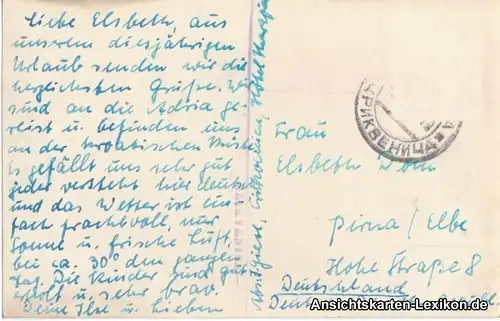 Liebe Elsbeth, aus
unserem diesjährigen
Urlaub senden wir die
herzlichsten Grüße. Wir
sind an die Adria ge-
reist u. befinden uns
an der kroatischen Küste
Es gefällt uns sehr gut
jeder versteht hier deutsch
und das Wetter ist ein-
fach prachtvoll, nur
Sonne u. frische Luft,
bei ca. 30° den ganzen
Tag. Die Kinder sind gut
erholt u. sehr brav.
Deine Ilse u. Lieben
Hotel Therapia
Frau
Elsbeth Dorn
Pirna/Elbe
Hohe Straße 8
Deutschland
ЦРИКВЕНИЦА
Ansichtskarten-Lexikon.de